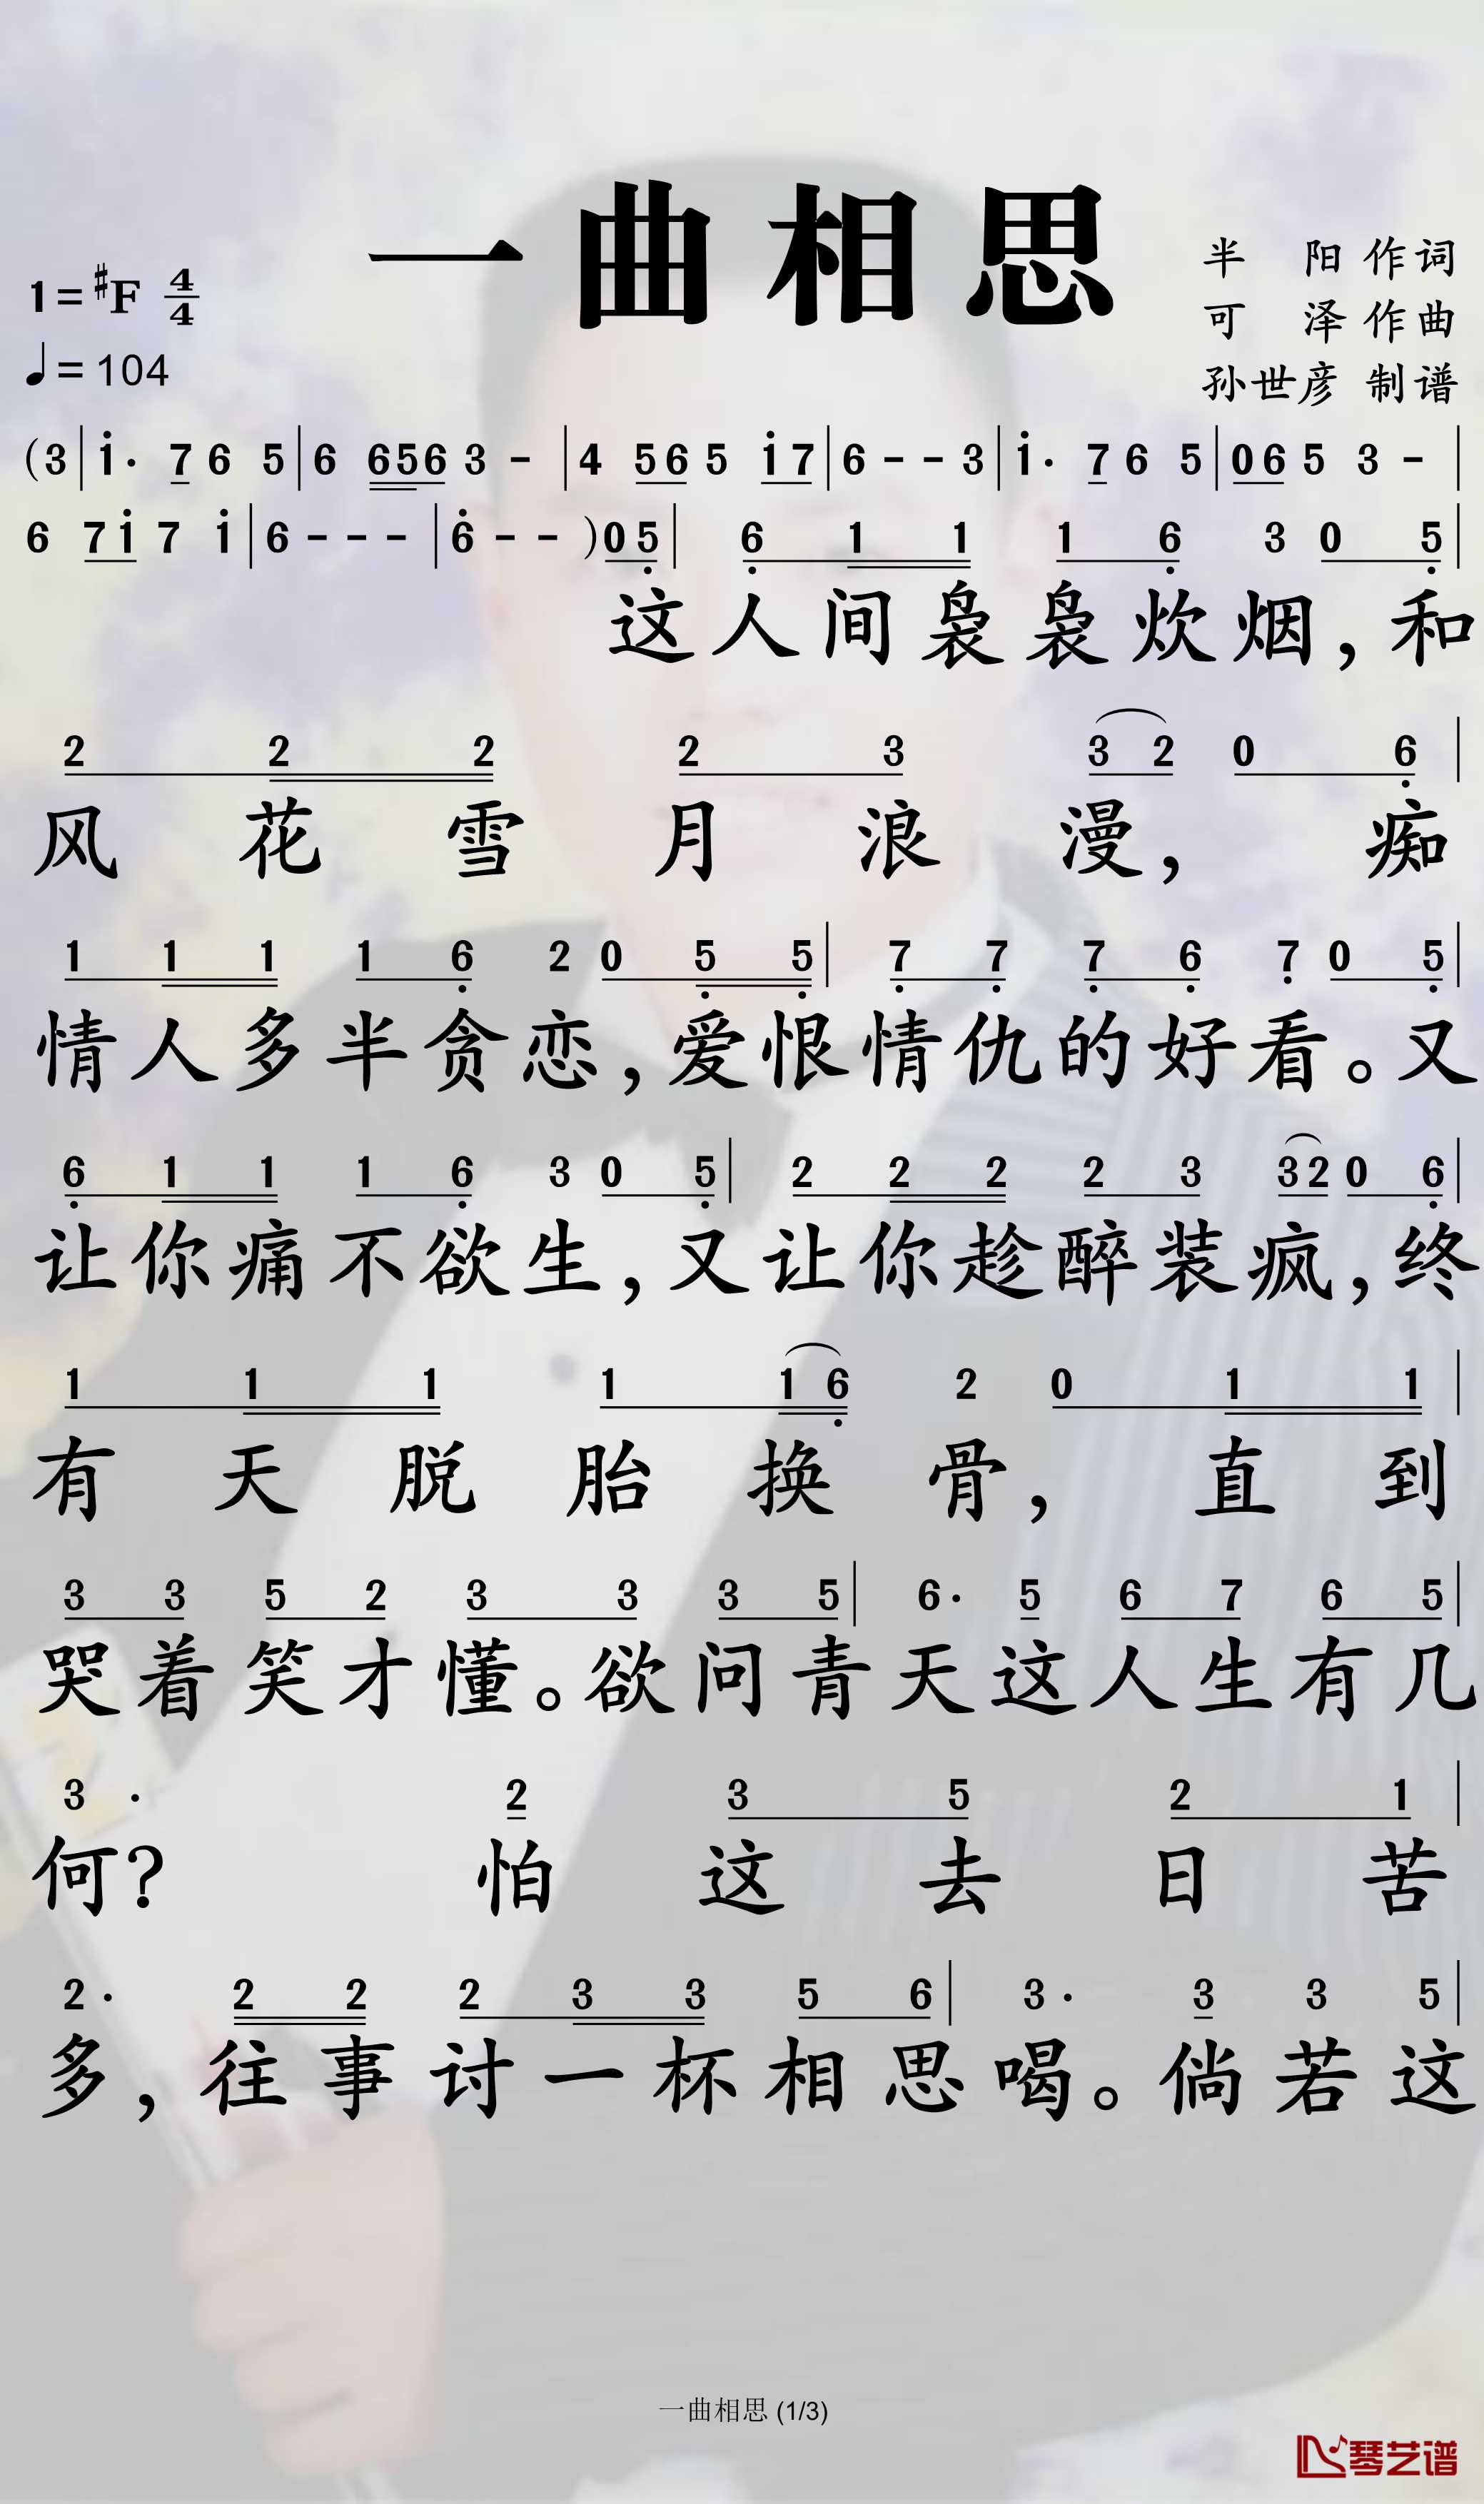 一曲相思
1=♯F 4/4
♩=104
半 阳 作词
可 泽 作曲
孙世彦 制谱
(3|i· 7 6 5|6 656 3 -|4 56 5 i7|6 - - 3|i· 7 6 5|06 5 3 -|
6 7i 7 i|6 - - -|6̇ - - )05̣|6̣ 1 1 1 6̣ 3 0 5̣|
这人间袅袅炊烟，和
2 2 2 2 3 3 2 0 6̣|
风花雪月浪漫，痴
1 1 1 1 6̣ 2 0 5̣ 5̣|7̣ 7̣ 7̣ 6̣ 7̣ 0 5̣|
情人多半贪恋，爱恨情仇的好看。又
6̣ 1 1 1 6̣ 3 0 5̣|2 2 2 2 3 32 0 6̣|
让你痛不欲生，又让你趁醉装疯，终
1 1 1 1 1 6̣ 2 0 1 1|
有天脱胎换骨，直到
3 3 5 2 3 3 3 5|6· 5 6 7 6 5|
哭着笑才懂。欲问青天这人生有几
3 · 2 3 5 2 1|
何？怕这去日苦
2· 2 2 2 3 3 5 6|3· 3 3 5|
多，往事讨一杯相思喝。倘若这
一曲相思 (1/3)
琴艺谱